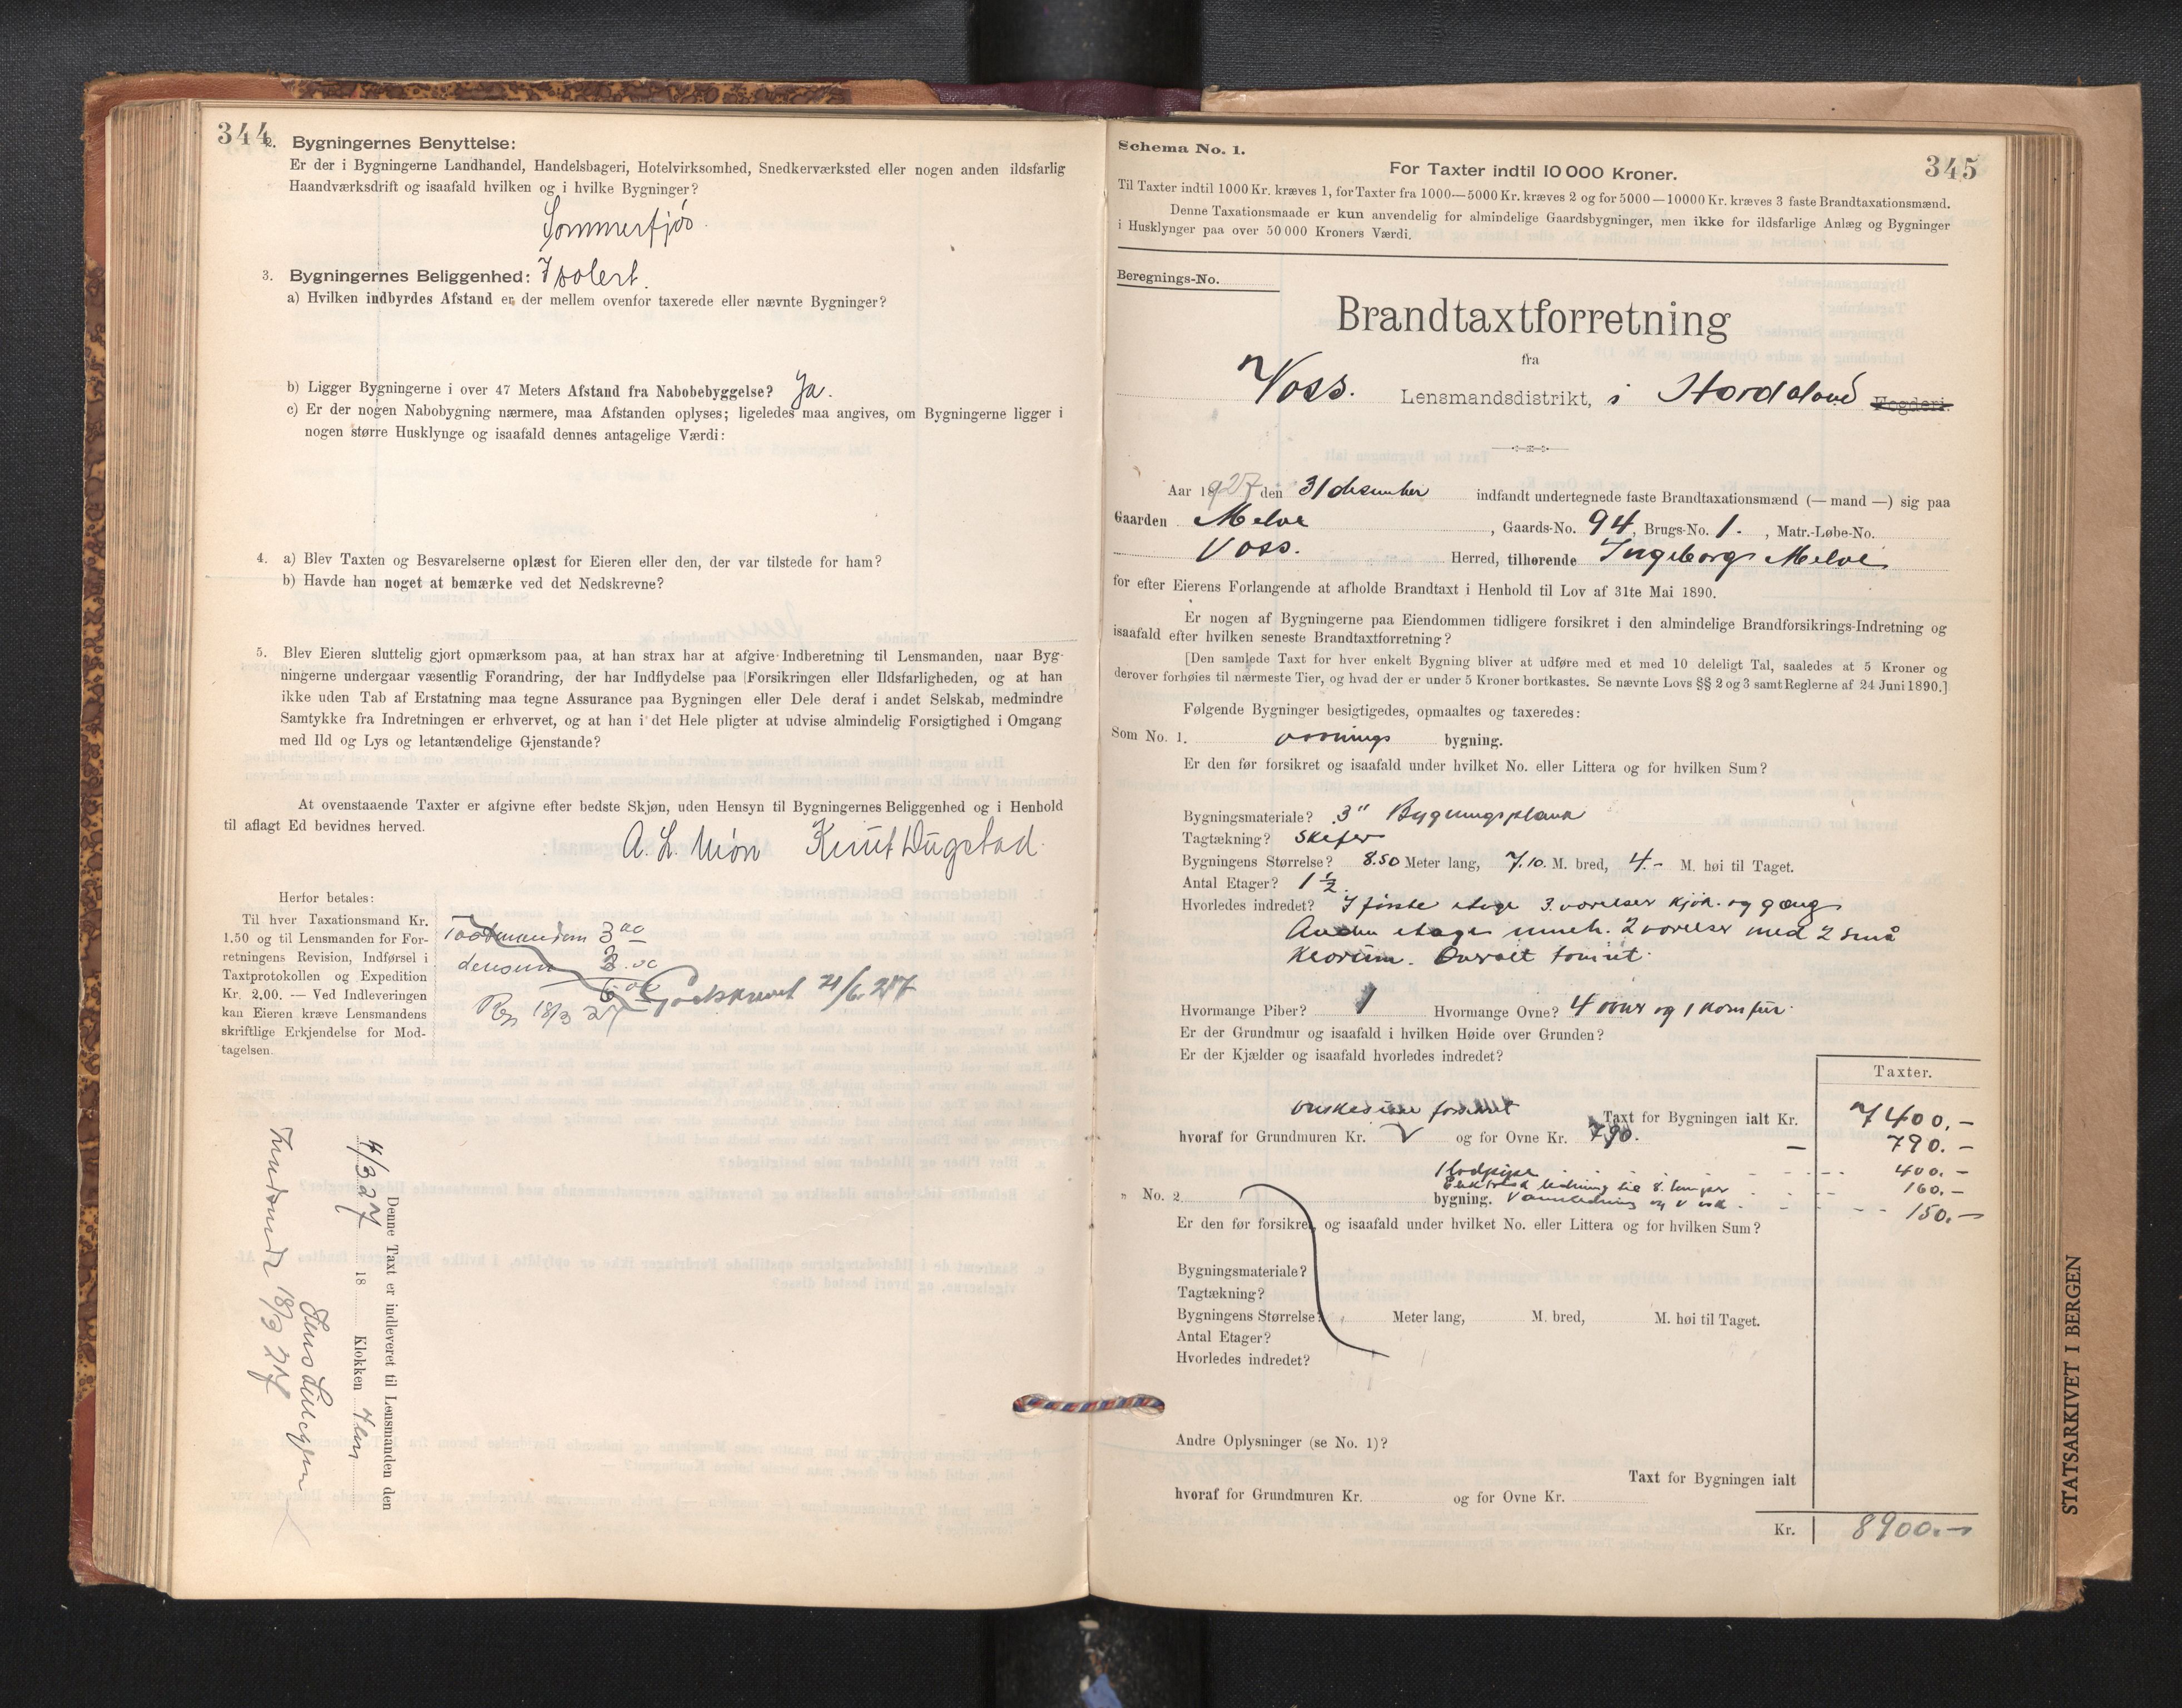 344
2. Bygningernes Benyttelse:
Er der i Bygningerne Landhandel, Handelsbageri, Hotelvirksomhed, Snedkerværksted eller nogen anden ildsfarlig
Haandværksdrift og isaafald hvilken og i hvilke Bygninger?
Sommerfjøs.
3. Bygningernes Beliggenhed: Isolert.
a) Hvilken indbyrdes Afstand er der mellem ovenfor taxerede eller nævnte Bygninger?
b) Ligger Bygningerne i over 47 Meters Afstand fra Nabobebyggelse? Ja.
c) Er der nogen Nabobygning nærmere, maa Afstanden oplyses; ligeledes maa angives, om Bygningerne ligger i
nogen større Husklynge og isaafald dennes antagelige Værdi:
4. a) Blev Taxten og Besvarelserne oplæst for Eieren eller den, der var tilstede for ham?
b) Havde han noget at bemærke ved det Nedskrevne?
5. Blev Eieren sluttelig gjort opmærksom paa, at han strax har at afgive Indberetning til Lensmanden, naar Byg-
ningerne undergaar væsentlig Forandring, der har Indflydelse paa Forsikringen eller Ildsfarligheden, og at han
ikke uden Tab af Erstatning maa tegne Assurance paa Bygningen eller Dele deraf i andet Selskab, medmindre
Samtykke fra Indretningen er erhvervet, og at han i det Hele pligter at udvise almindelig Forsigtighed i Omgang
med Ild og Lys og letantændelige Gjenstande?
At ovenstaaende Taxter er afgivne efter bedste Skjøn, uden Hensyn til Bygningernes Beliggenhed og i Henhold
til aflagt Ed bevidnes herved.
A. L. Møn Knut Dugstad.
Herfor betales:
Til hver Taxationsmand Kr.
1.50 og til Lensmanden for For-
retningens Revision, Indførsel i
Taxtprotokollen og Expedition
Kr. 2.00. — Ved Indleveringen
kan Eieren kræve Lensmandens
skriftlige Erkjendelse for Mod-
tagelsen.
3.00
lensm 3.00
6.00 Godskrevet 21/6.27
18/3 27
Denne Taxt er indleveret til Lensmanden den
4/3 27 18 Klokken
18/3 27
345
Schema No. 1.
For Taxter indtil 10 000 Kroner.
Til Taxter indtil 1000 Kr. kræves 1, for Taxter fra 1000—5000 Kr. kræves 2 og for 5000—10000 Kr. kræves 3 faste Brandtaxationsmænd.
Denne Taxationsmaade er kun anvendelig for almindelige Gaardsbygninger, men ikke for ildsfarlige Anlæg og Bygninger
i Husklynger paa over 50 000 Kroners Værdi.
Beregnings-No.
Brandtaxtforretning
fra
Voss. Lensmandsdistrikt, i Hordaland Fogderi.
Aar 1927 den 31 desember indfandt undertegnede faste Brandtaxationsmænd (— mand —) sig paa
Gaarden Melve, Gaards-No. 94, Brugs-No. 1., Matr.-Løbe-No.
Voss. Herred, tilhørende Ingeborg Melve
for efter Eierens Forlangende at afholde Brandtaxt i Henhold til Lov af 31te Mai 1890.
Er nogen af Bygningerne paa Eiendommen tidligere forsikret i den almindelige Brandforsikrings-Indretning og
isaafald efter hvilken seneste Brandtaxtforretning?
[Den samlede Taxt for hver enkelt Bygning bliver at udføre med et med 10 deleligt Tal, saaledes at 5 Kroner og
derover forhøies til nærmeste Tier, og hvad der er under 5 Kroner bortkastes. Se nævnte Lovs §§ 2 og 3 samt Reglerne af 24 Juni 1890.]
Følgende Bygninger besigtigedes, opmaaltes og taxeredes:
Som No. 1. vonings bygning.
Er den før forsikret og isaafald under hvilket No. eller Littera og for hvilken Sum?
Bygningsmateriale? 3" Bygningsplank
Tagtækning? Skifer
Bygningens Størrelse? 8.50 Meter lang, 7.10. M. bred, 4.- M. høi til Taget.
Antal Etager? 1 1/2.
Hvorledes indredet? I første etage 3 værelser kjøk. og gang
Anden etage inneh. 2 værelser med 2 små
Overalt
Hvormange Piber? 1 Hvormange Ovne? 4 ovner og 1 komfür.
Er der Grundmur og isaafald i hvilken Høide over Grunden?
Er der Kjælder og isaafald hvorledes indredet?
Taxter.
ønskes ikke forsikret Taxt for Bygningen ialt Kr. 7400.-
hvoraf for Grundmuren Kr. og for Ovne Kr. 790. — 790.-
400.-
Elektrisk ledning til 8 lamper 160.-
" No. 2 bygning. Vannledning og vask 150.-
Er den før forsikret, og isaafald under hvilket No. eller Littera og for hvilken Sum?
Bygningsmateriale?
Tagtækning?
Bygningens Størrelse? Meter lang, M. bred, M. høi til Taget.
Antal Etager?
Hvorledes indredet?
Andre Oplysninger (se No. 1)?
Taxt for Bygningen ialt
hvoraf for Grundmuren Kr. og for Ovne Kr.
Kr. 8900.-
STATSARKIVET I BERGEN